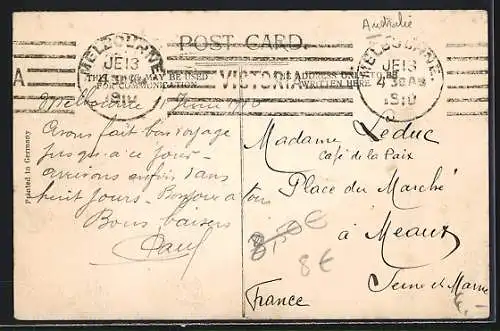 Australie
POST CARD.
MELBOURNE
JE 13
4 30 AM
S 10
VICTORIA
A
MELBOURNE
JE 13
4 30 AM
S 10
THIS MAY BE USED
FOR COMMUNICATION
ADDRESS ONLY TO BE
WRITTEN HERE
Printed in Germany
Melbourne 11 1910
Avons fait bon voyage
jusqu'à ce jour
arrivons dans
huit jours. Bonjour à tous
Bons baisers
Paul
Madame Leduc
Café de la Paix
Place du Marché
à Meaux
Seine et Marne
France
8,50 €
8€